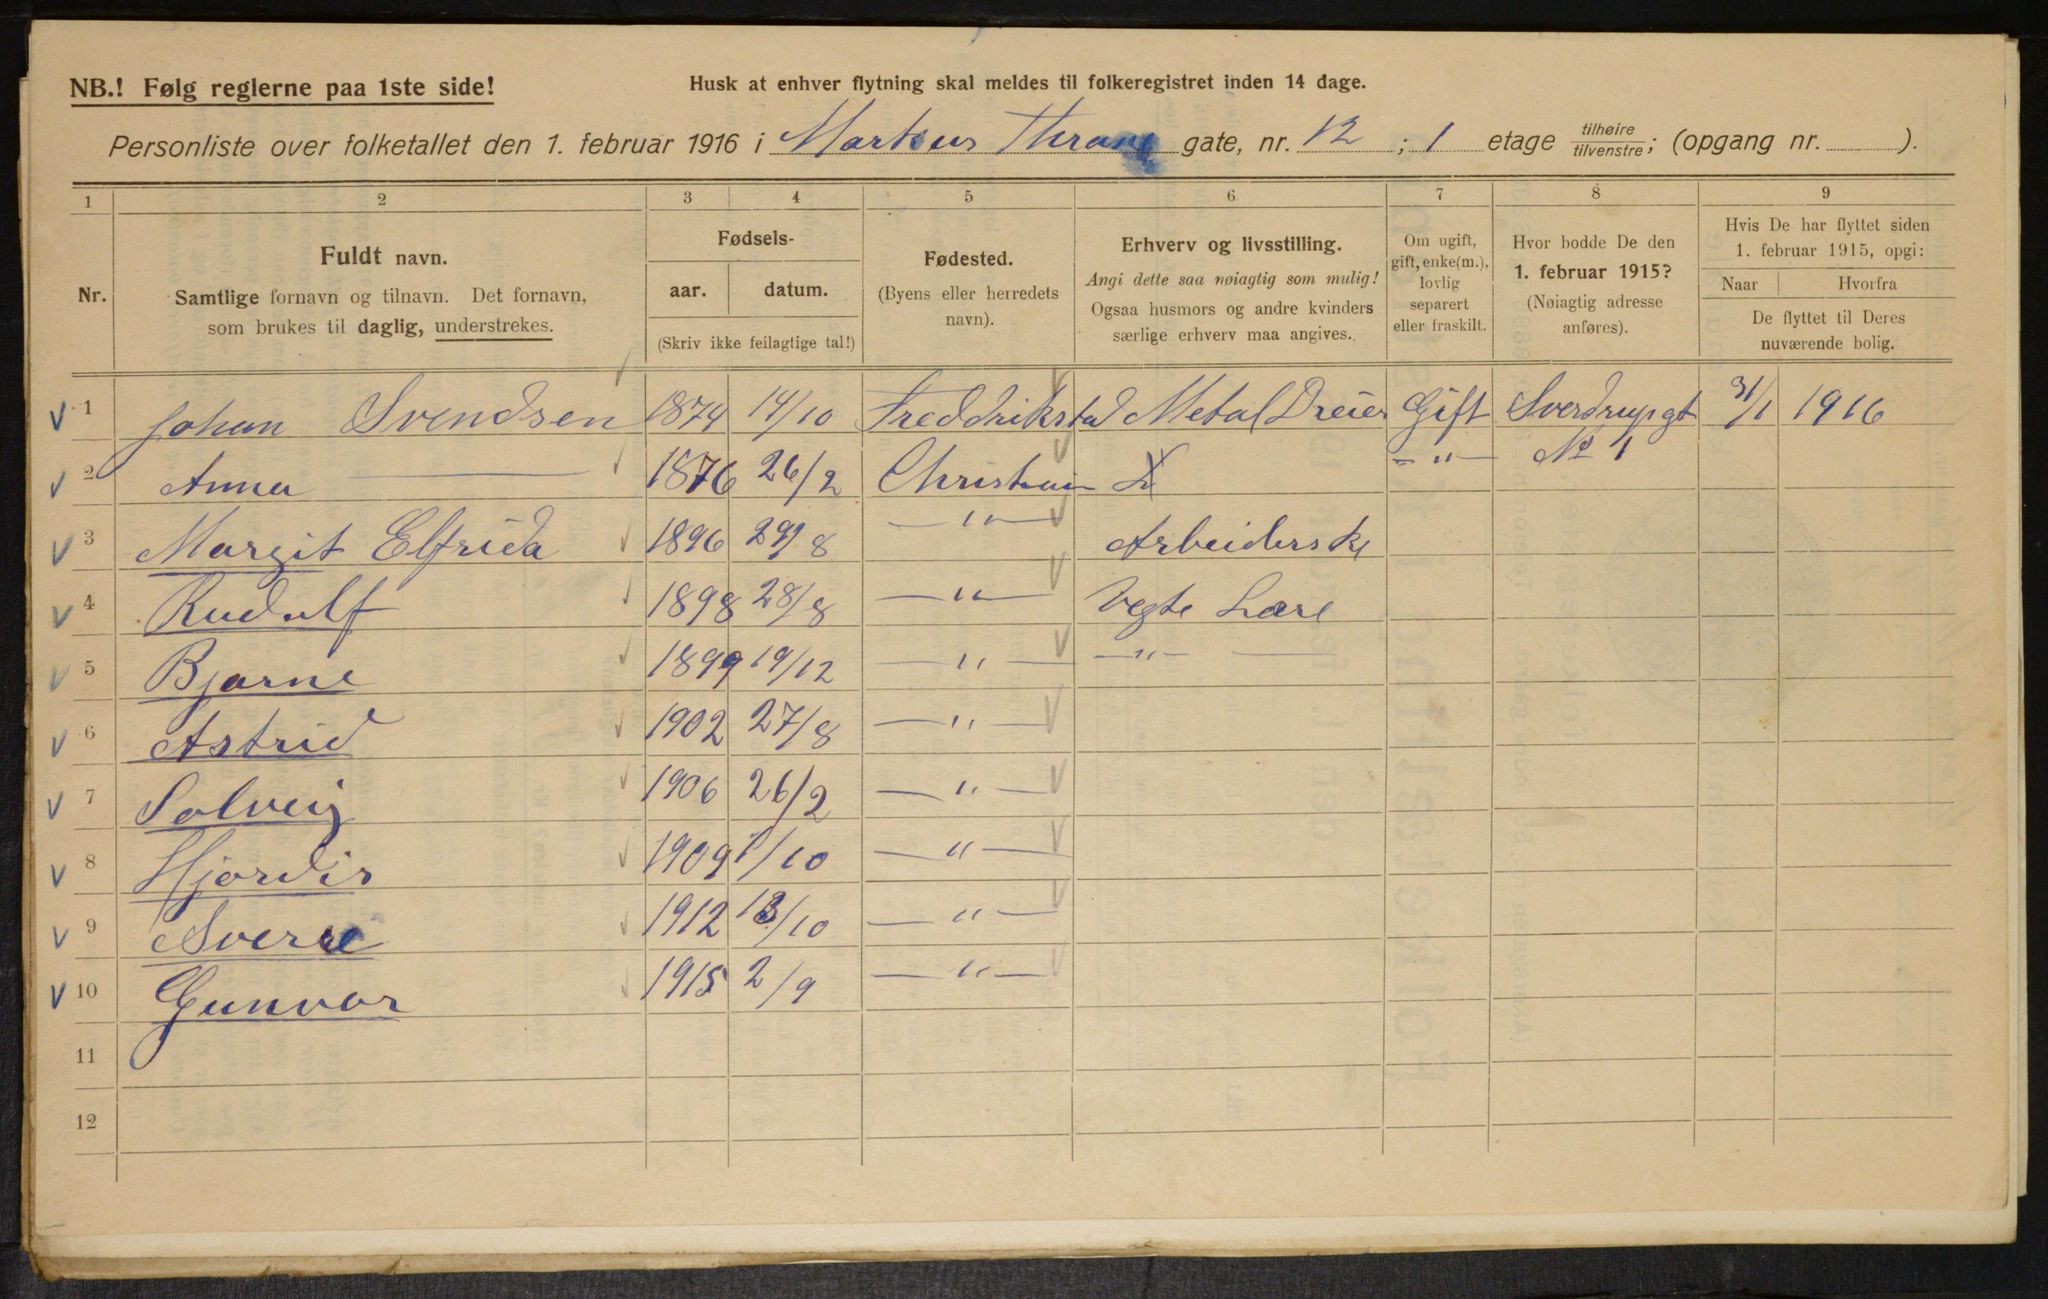 NB.! Følg reglerne paa 1ste side!
Husk at enhver flytning skal meldes til folkeregistret inden 14 dage.
Personliste over folketallet den 1. februar 1916 i Markus Thrane gate, nr. 12 ; 1 etage tilhøire/tilvenstre; (opgang nr. ).
1 2 3 4 5 6 7 8 9
Nr.
Fuldt navn.
Samtlige fornavn og tilnavn. Det fornavn,
som brukes til daglig, understrekes.
Fødsels-
aar. datum.
(Skriv ikke feilagtige tal!)
Fødested.
(Byens eller herredets
navn).
Erhverv og livsstilling.
Angi dette saa nøiagtig som mulig!
Ogsaa husmors og andre kvinders
særlige erhverv maa angives.
Om ugift,
gift, enke(m.),
lovlig
separert
eller fraskilt.
Hvor bodde De den
1. februar 1915?
(Nøiagtig adresse
anføres).
Hvis De har flyttet siden
1. februar 1915, opgi:
Naar Hvorfra
De flyttet til Deres
nuværende bolig.
1 Johan Svendsen 1874 14/10 Freddrikstad Metal Dreier Gift Sverdrupgt 31/1 1916
2 Anna — 1876 26/2 Christiania — " — No 1
3 Margit Elfrida 1896 29/8 — " — Arbeiderske
4 Rudolf 1898 28/8 — " — Lære
5 Bjarne 1899 19/12 — " — — " —
6 Astrid 1902 27/8 — " —
7 Solveig 1906 26/2 — " —
8 Hjordis 1909 1/10 — " —
9 Sverre 1912 13/10 — " —
10 Gunvor 1915 2/9 — " —
11
12